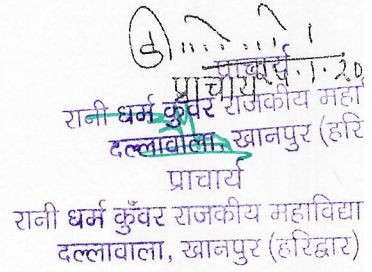 प्राचार्य
प्राचार्य
रानी धर्म कुँवर राजकीय महा
दल्लावाला, खानपुर (हरि
प्राचार्य
रानी धर्म कुँवर राजकीय महाविद्या
दल्लावाला, खानपुर (हरिद्वार)